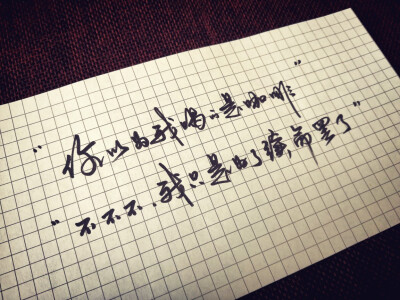 “你以为我喝的是咖啡”
“不不不，我只是为了糖而罢了”